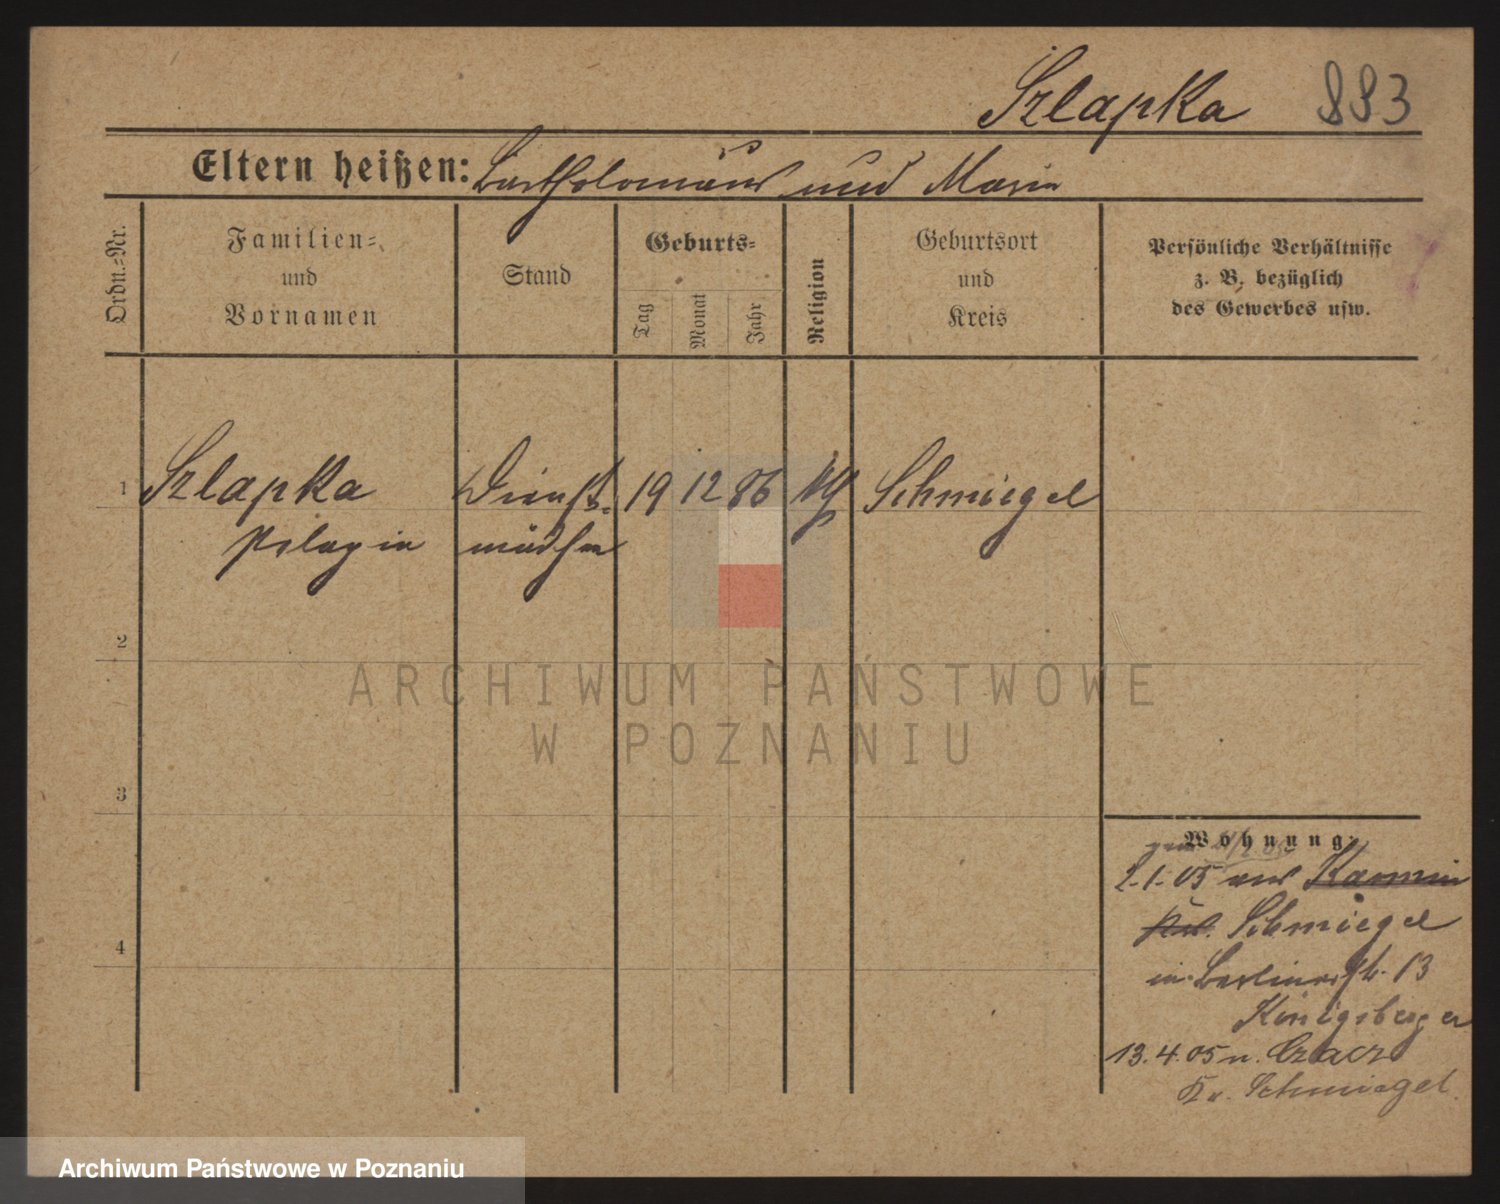 Szlapka 883
Eltern heißen: Bartholomäus und Marie
Ordn.-Nr.
Familien-
und
Vornamen
Stand
Geburts-
Tag
Monat
Jahr
Religion
Geburtsort
und
Kreis
Persönliche Verhältnisse
z. B. bezüglich
des Gewerbes usw.
1 Szlapka Dienst- 19 12 86 Schmiegel
Pelagia mädchen
2
3
4
Wohnung:
2.1.05 aus Karmin
Schmiegel
in Berlinerstr. 13
Königsberger
13.4.05 n. Czacz
Kr. Schmiegel.
ARCHIWUM PAŃSTWOWE
W POZNANIU
Archiwum Państwowe w Poznaniu